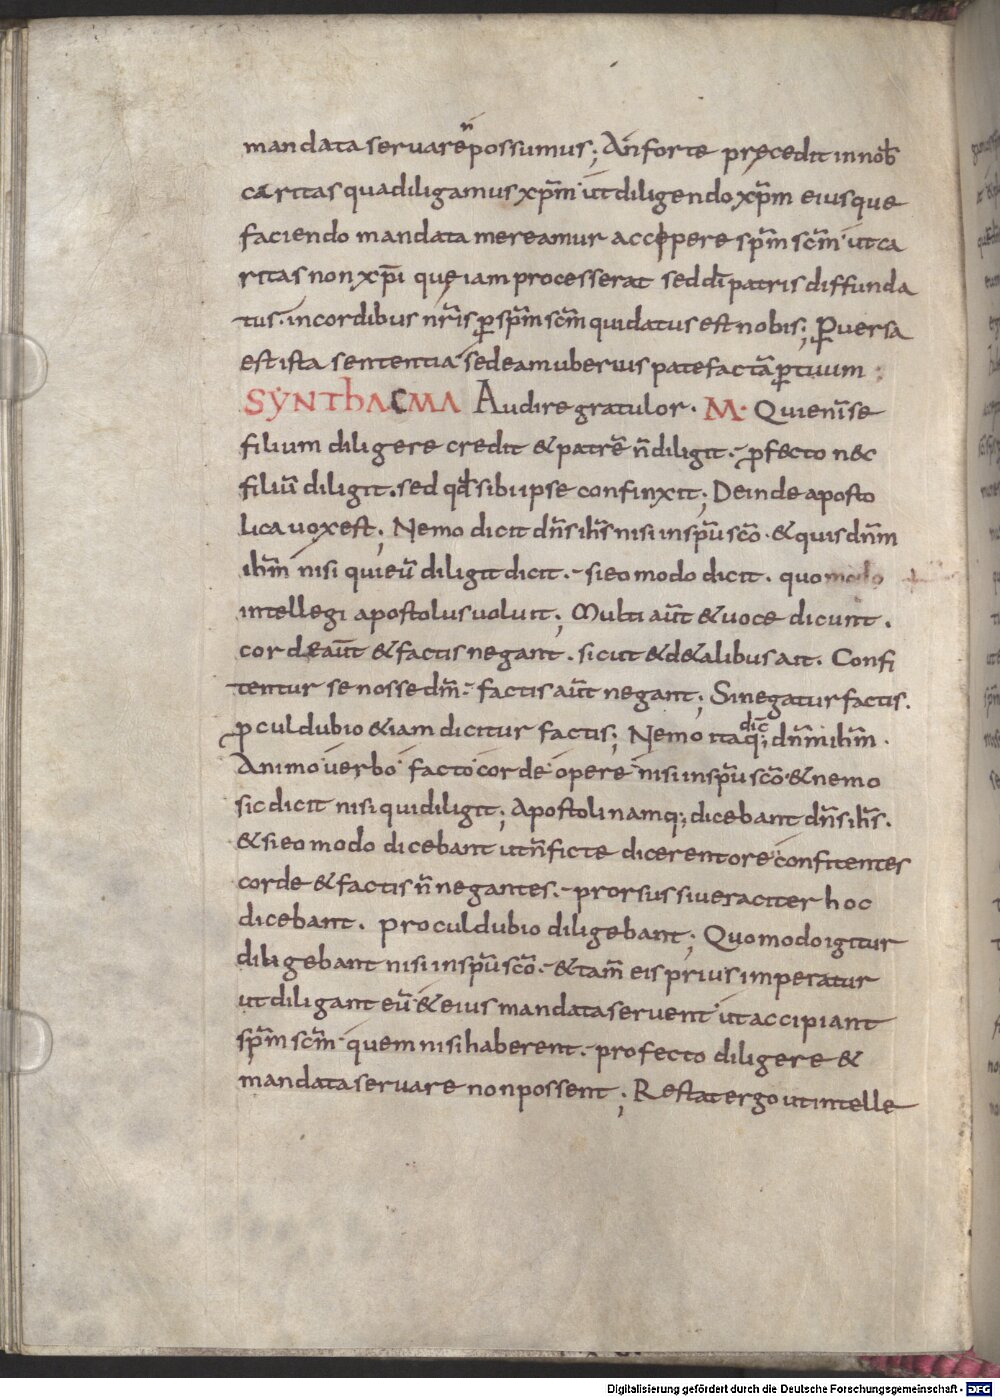 mandata seruare n̄ possumus; An forte pręcedit in nob̄
caritas qua diligamus xp̄m ut diligendo xp̄m eiusque
faciendo mandata mereamur accipere sp̄m sc̄m ut ca
ritas non xp̄i quę iam processerat sed dī patris diffunda
tur in cordibus nr̄is ꝑ sp̄m sc̄m qui datus est nobis; Ꝑuersa
est ista sententia sed eam uberius patefactā ꝑ tuum
SYNTHACMA Audire gratulor. M. Qui enī se
filium diligere credit & patrē n̄ diligit. ꝓfecto nec
filiū diligit. sed qđ sibi ipse confinxit; Deinde aposto
lica uox est; Nemo dicit dn̄s ih̄s nisi in sp̄u sc̄o. & quis dn̄m
ih̄m nisi qui eū diligit dicit. si eo modo dicit. quomodo
intellegi apostolus uoluit; Multi aūt & uoce dicunt.
corde aūt & factis negant. sicut & d& alibus ait. Confi
tentur se nosse dm̄. factis aūt negant; Si negatur factis.
ꝓcul dubio & iam dicitur factis; Nemo itaq; dic̄ dn̄m ih̄m.
Animo uerbo facto corde opere nisi in sp̄u sc̄o. & nemo
sic dicit nisi qui diligit; Apostoli namq; dicebant dn̄s ih̄s.
& si eo modo dicebant ut n̄ ficte dicerent ore confitentes
corde & factis n̄ negantes. prorsus si ueraciter hoc
dicebant. procul dubio diligebant; Quomodo igitur
diligebant nisi in sp̄u sc̄o. & tam̄ eis prius imperatur
ut diligant eū & eius mandata seruent ut accipiant
sp̄m sc̄m quem nisi haberent. profecto diligere &
mandata seruare non possent; Restat ergo ut intelle
Digitalisierung gefördert durch die Deutsche Forschungsgemeinschaft - DFG